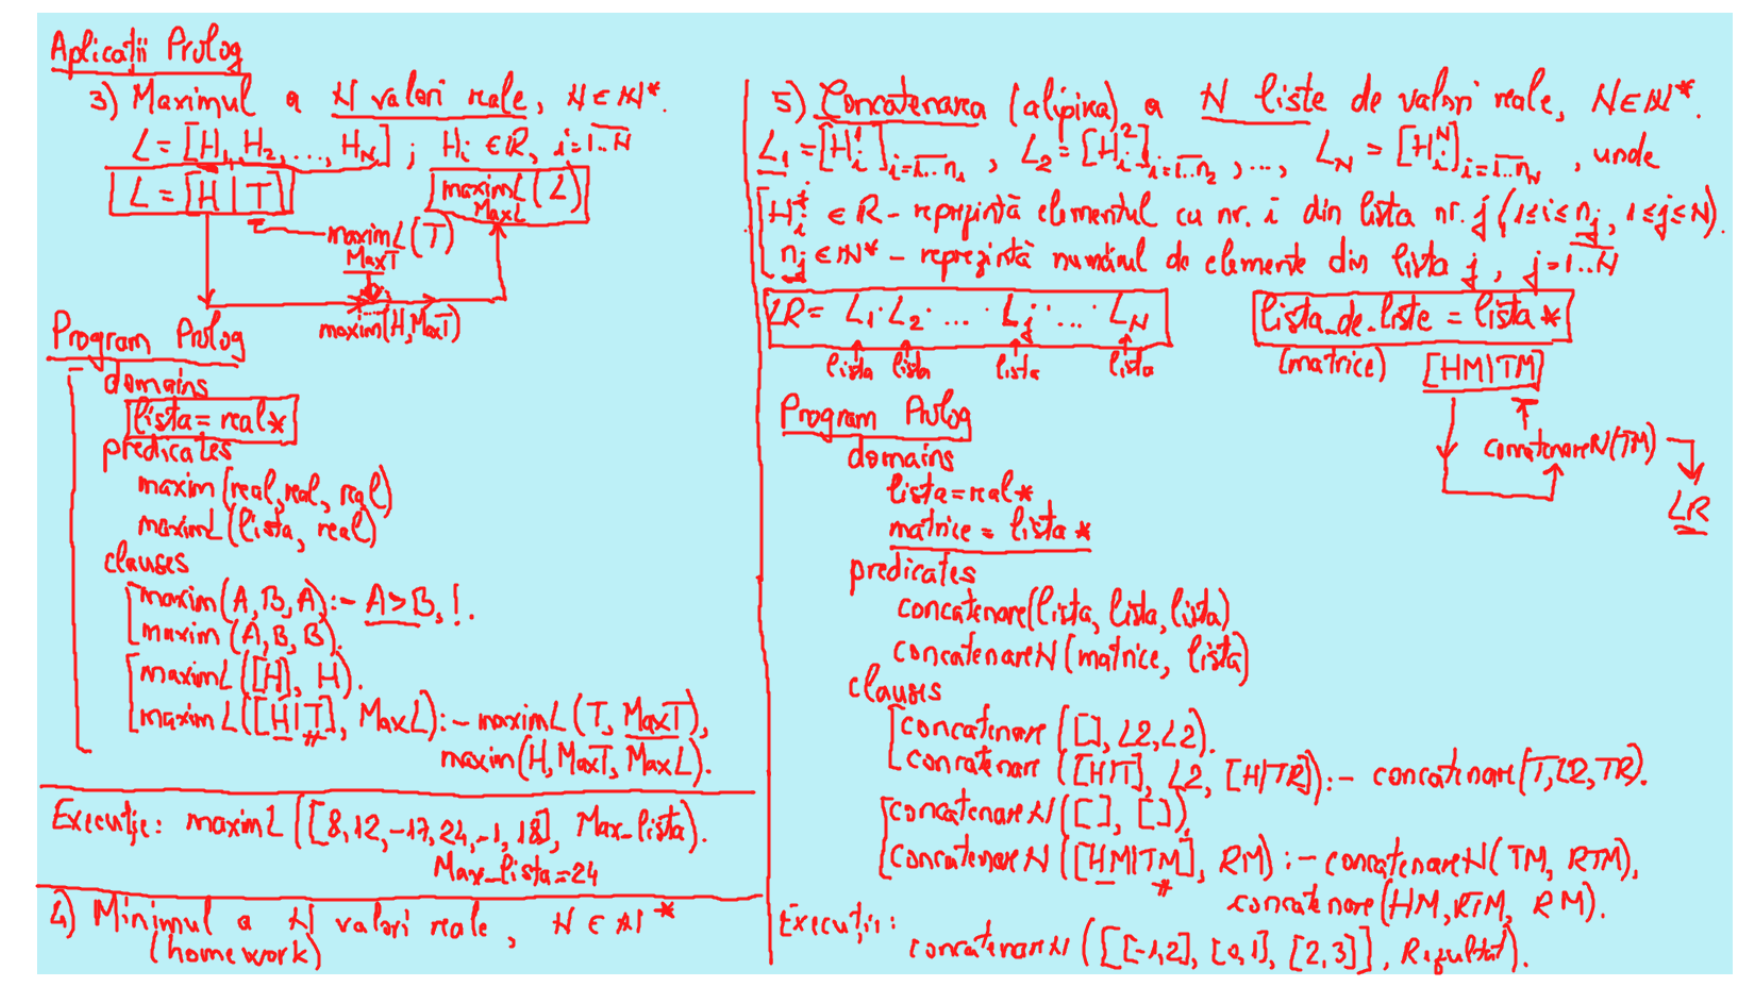 Aplicații Prolog
3) Maximul a N valori reale, N ∈ ℕ*.
L = [H1, H2, ..., HN] ; Hi ∈ ℝ, i = 1..N
L = [H | T]
maximL(L)
MaxL
maximL(T)
MaxT
maxim(H, MaxT)
Program Prolog
domains
lista = real*
predicates
maxim(real, real, real)
maximL(lista, real)
clauses
maxim(A, B, A) :- A > B, !.
maxim(A, B, B).
maximL([H], H).
maximL([H|T], MaxL) :- maximL(T, MaxT),
maxim(H, MaxT, MaxL).
Execuție: maximL([8, 12, -17, 24, -1, 18], Max_lista).
Max_lista = 24
4) Minimul a N valori reale, N ∈ ℕ*
(homework)
5) Concatenarea (alipirea) a N liste de valori reale, N ∈ ℕ*.
L1 = [Hi^1] i=1..n1, L2 = [Hi^2] i=1..n2, ..., LN = [Hi^N] i=1..nN, unde
Hi^j ∈ ℝ - reprezintă elementul cu nr. i din lista nr. j (1≤i≤nj, 1≤j≤N).
nj ∈ ℕ* - reprezintă numărul de elemente din lista j, j=1..N
LR = L1 · L2 · ... · Lj · ... · LN
lista lista lista lista
lista_de_liste = lista*
(matrice) [HM|TM]
concatenareN(TM)
LR
Program Prolog
domains
lista = real*
matrice = lista*
predicates
concatenare(lista, lista, lista)
concatenareN(matrice, lista)
clauses
concatenare([], L2, L2).
concatenare([H|T], L2, [H|TR]) :- concatenare(T, L2, TR).
concatenareN([], []).
concatenareN([HM|TM], RM) :- concatenareN(TM, RTM),
concatenare(HM, RTM, RM).
Execuție:
concatenareN([[-1,2], [0,1], [2,3]], Rezultat).